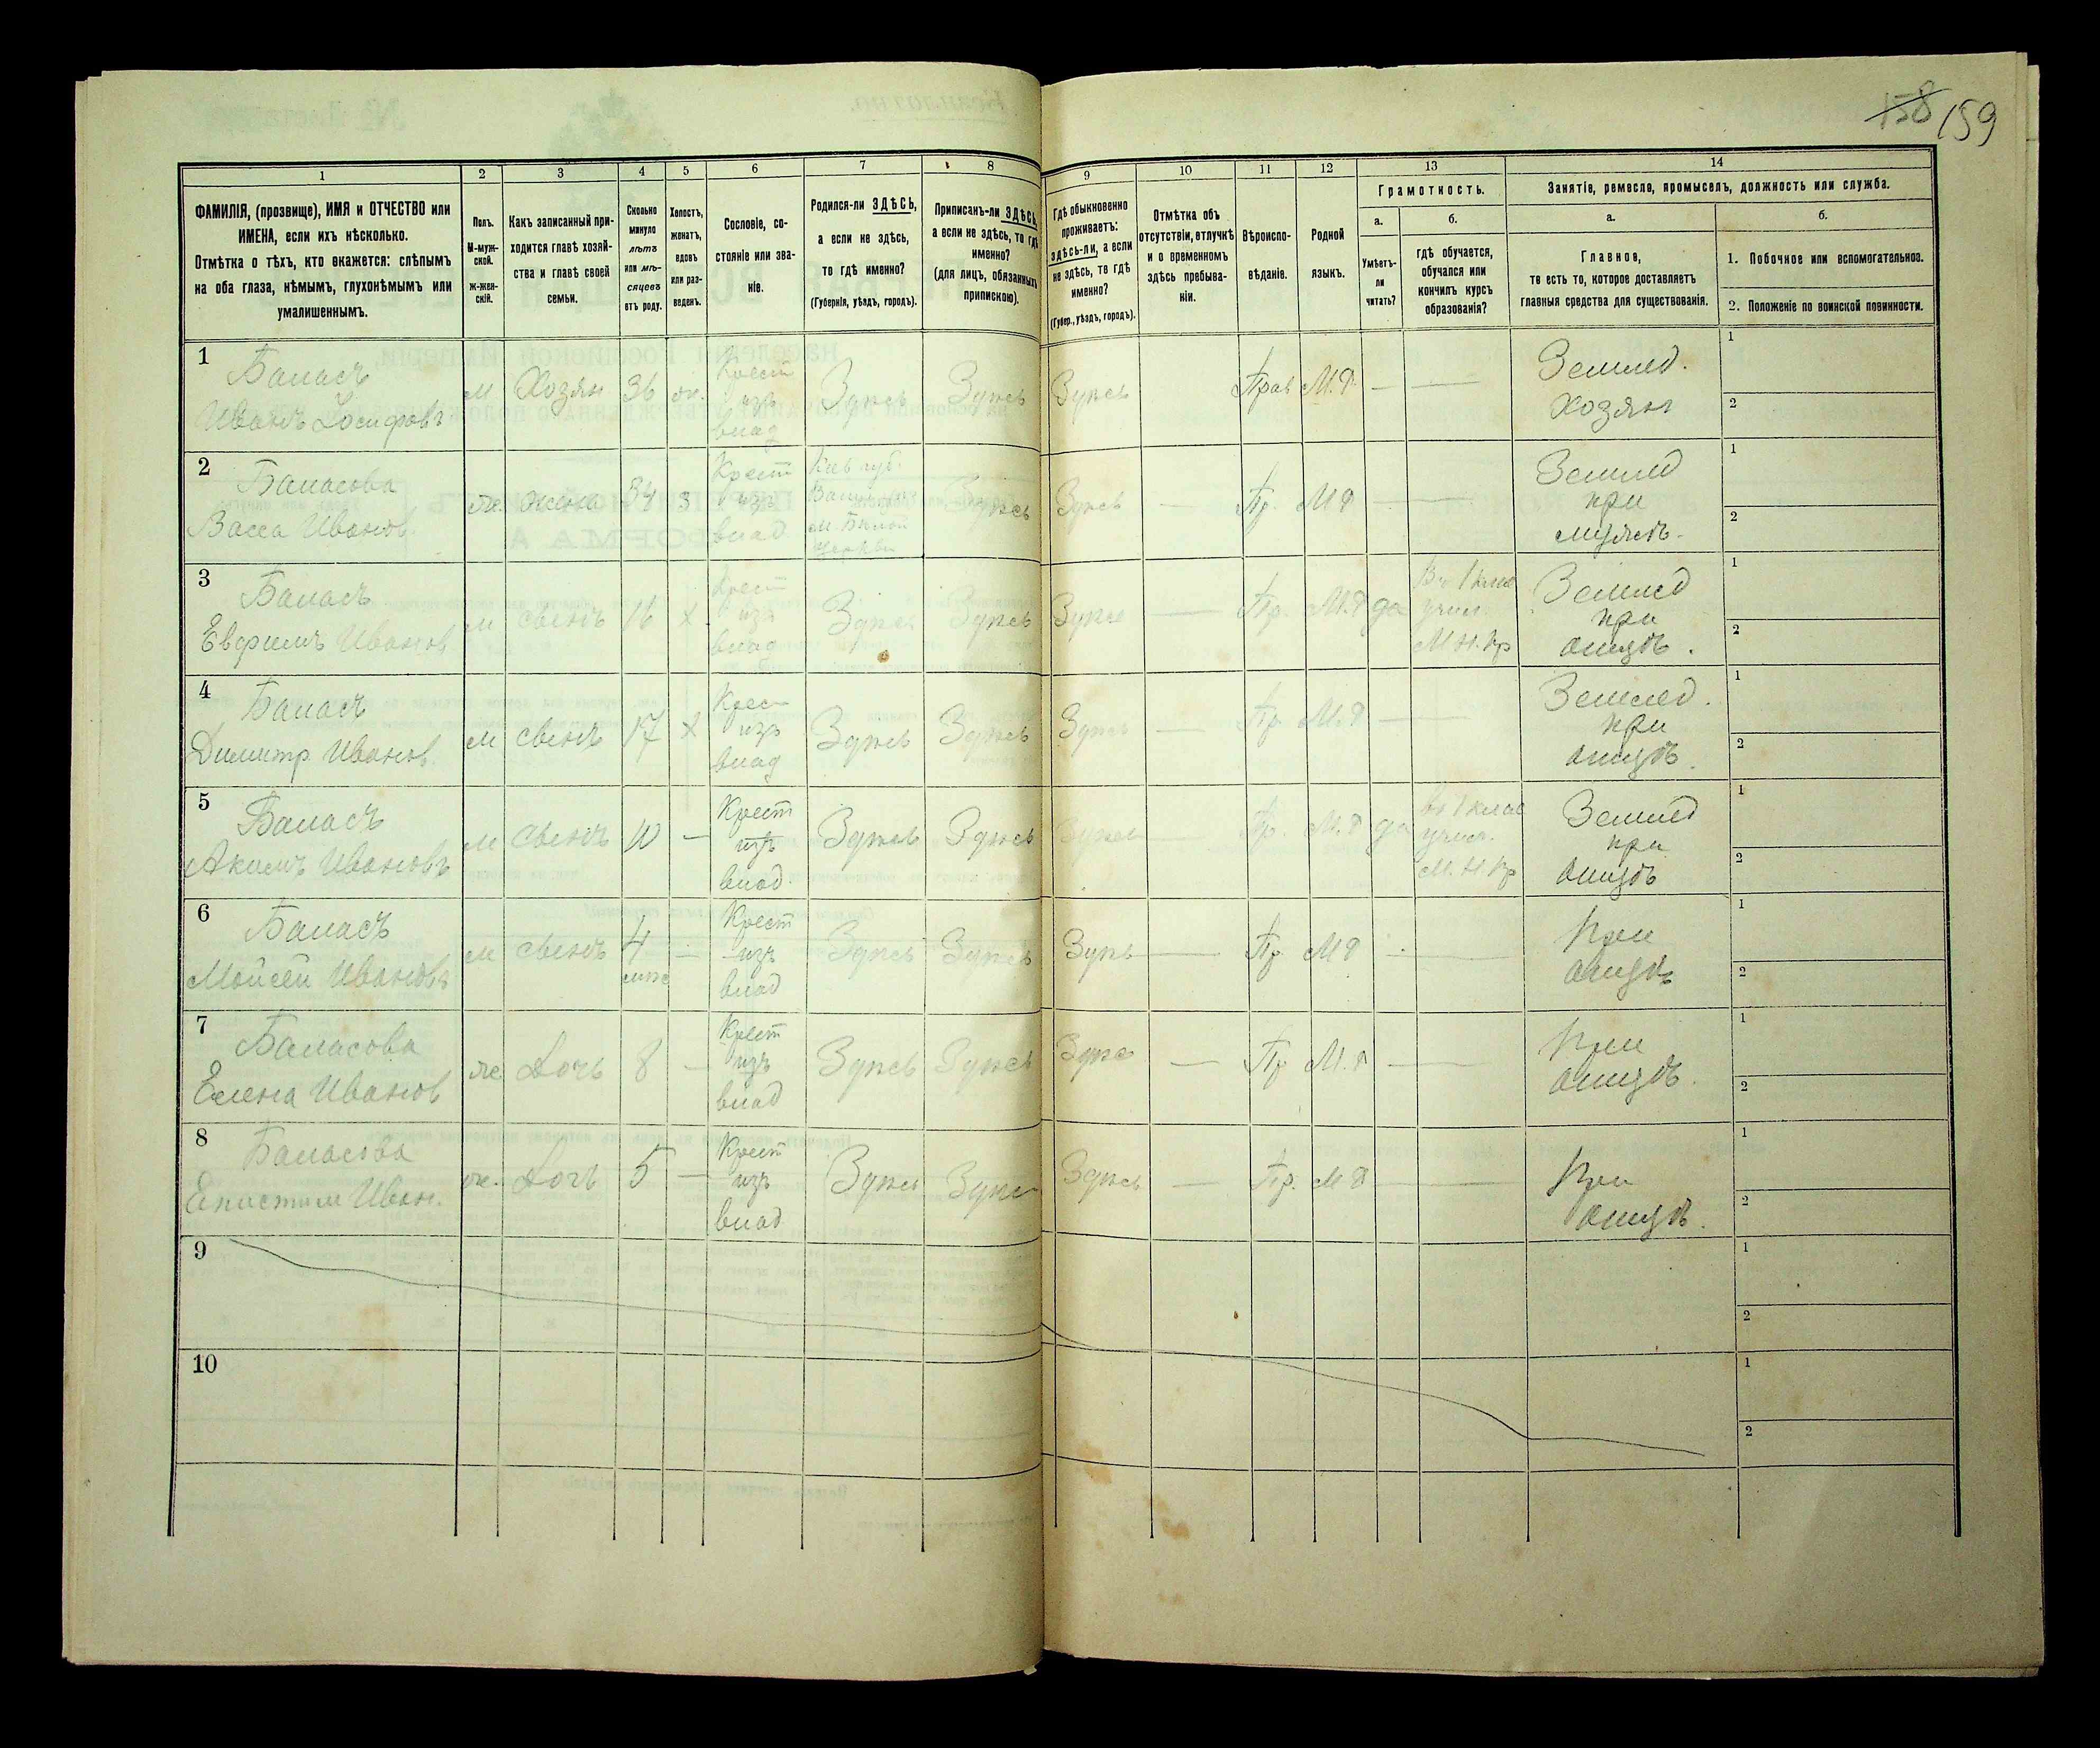 158 159
1 2 3 4 5 6 7 8 9 10 11 12 13 14
ФАМИЛІЯ, (прозвище), ИМЯ и ОТЧЕСТВО или
ИМЕНА, если ихъ нѣсколько.
Отмѣтка о тѣхъ, кто окажется: слѣпымъ
на оба глаза, нѣмымъ, глухонѣмымъ или
умалишеннымъ.
Полъ.
М-муж-
ской.
Ж-жен-
скій.
Какъ записанный при-
ходится главѣ хозяй-
ства и главѣ своей
семьи.
Сколько
минуло
лѣтъ
или мѣ-
сяцевъ
отъ роду.
Холостъ,
женатъ,
вдовъ
или раз-
веденъ.
Сословіе, со-
стояніе или зва-
ніе.
Родился-ли ЗДѢСЬ,
а если не здѣсь,
то гдѣ именно?
(Губернія, уѣздъ, городъ).
Приписанъ-ли ЗДѢСЬ,
а если не здѣсь, то гдѣ
именно?
(для лицъ, обязанныхъ
припискою).
Гдѣ обыкновенно
проживаетъ:
здѣсь-ли, а если
не здѣсь, то гдѣ
именно?
(Губер., уѣздъ, городъ).
Отмѣтка объ
отсутствіи, отлучкѣ
и о временномъ
здѣсь пребыва-
ніи.
Вѣроиспо-
вѣданіе.
Родной
языкъ.
Грамотность.
а.
Умѣетъ-
ли
читать?
б.
гдѣ обучается,
обучался или
кончилъ курсъ
образованія?
Занятіе, ремесло, промыселъ, должность или служба.
а.
Главное,
то есть то, которое доставляетъ
главныя средства для существованія.
б.
1. Побочное или вспомогательное.
2. Положеніе по воинской повинности.
1
Баласъ
Иванъ Іосифовъ
м Хозяин 36 ж.
Крест
изъ
влад
Здѣсь Здѣсь Здѣсь Прав М.Р. — —
Землед.
хозяин
1
2
2
Баласова
Васса Иванов.
ж. жена 34 з
Крест
изъ
влад
Кіев губ.
м Бѣлой
Церкви
Здѣсь Здѣсь — Пр. М Р —
Землед
при
мужѣ.
1
2
3
Баласъ
Евфимъ Иванов
м сынъ 16 х
Крест
изъ
влад
Здѣсь Здѣсь Здѣсь — Пр. М.Р да
Въ 1 клас
учил.
М.Н.Пр
Землед
при
отцѣ.
1
2
4
Баласъ
Димитр. Иванов.
м сынъ 17 х
Крест
изъ
влад
Здѣсь Здѣсь Здѣсь — Пр М.Р —
Землед.
при
отцѣ.
1
2
5
Баласъ
Акимъ Ивановъ
м сынъ 10 —
Крест
изъ
влад.
Здѣсь Здѣсь Здѣсь — Пр. М.Р да
въ 1 клас
учил.
М.Н.Пр
Землед
при
отцѣ
1
2
6
Баласъ
Мойсей Ивановъ
м сынъ 4 —
Крест
изъ
влад
Здѣсь Здѣсь Здѣсь — Пр М Р —
При
отцѣ
1
2
7
Баласова
Елена Иванов
ж Дочь 8 —
Крест
изъ
влад
Здѣсь Здѣсь Здѣсь — Пр М.Р —
При
отцѣ.
1
2
8
Баласова
Епистим Иван.
ж. Дочь 5 —
Крест
изъ
влад
Здѣсь Здѣсь Здѣсь — Пр. М Р —
При
отцѣ.
1
2
9
1
2
10
1
2